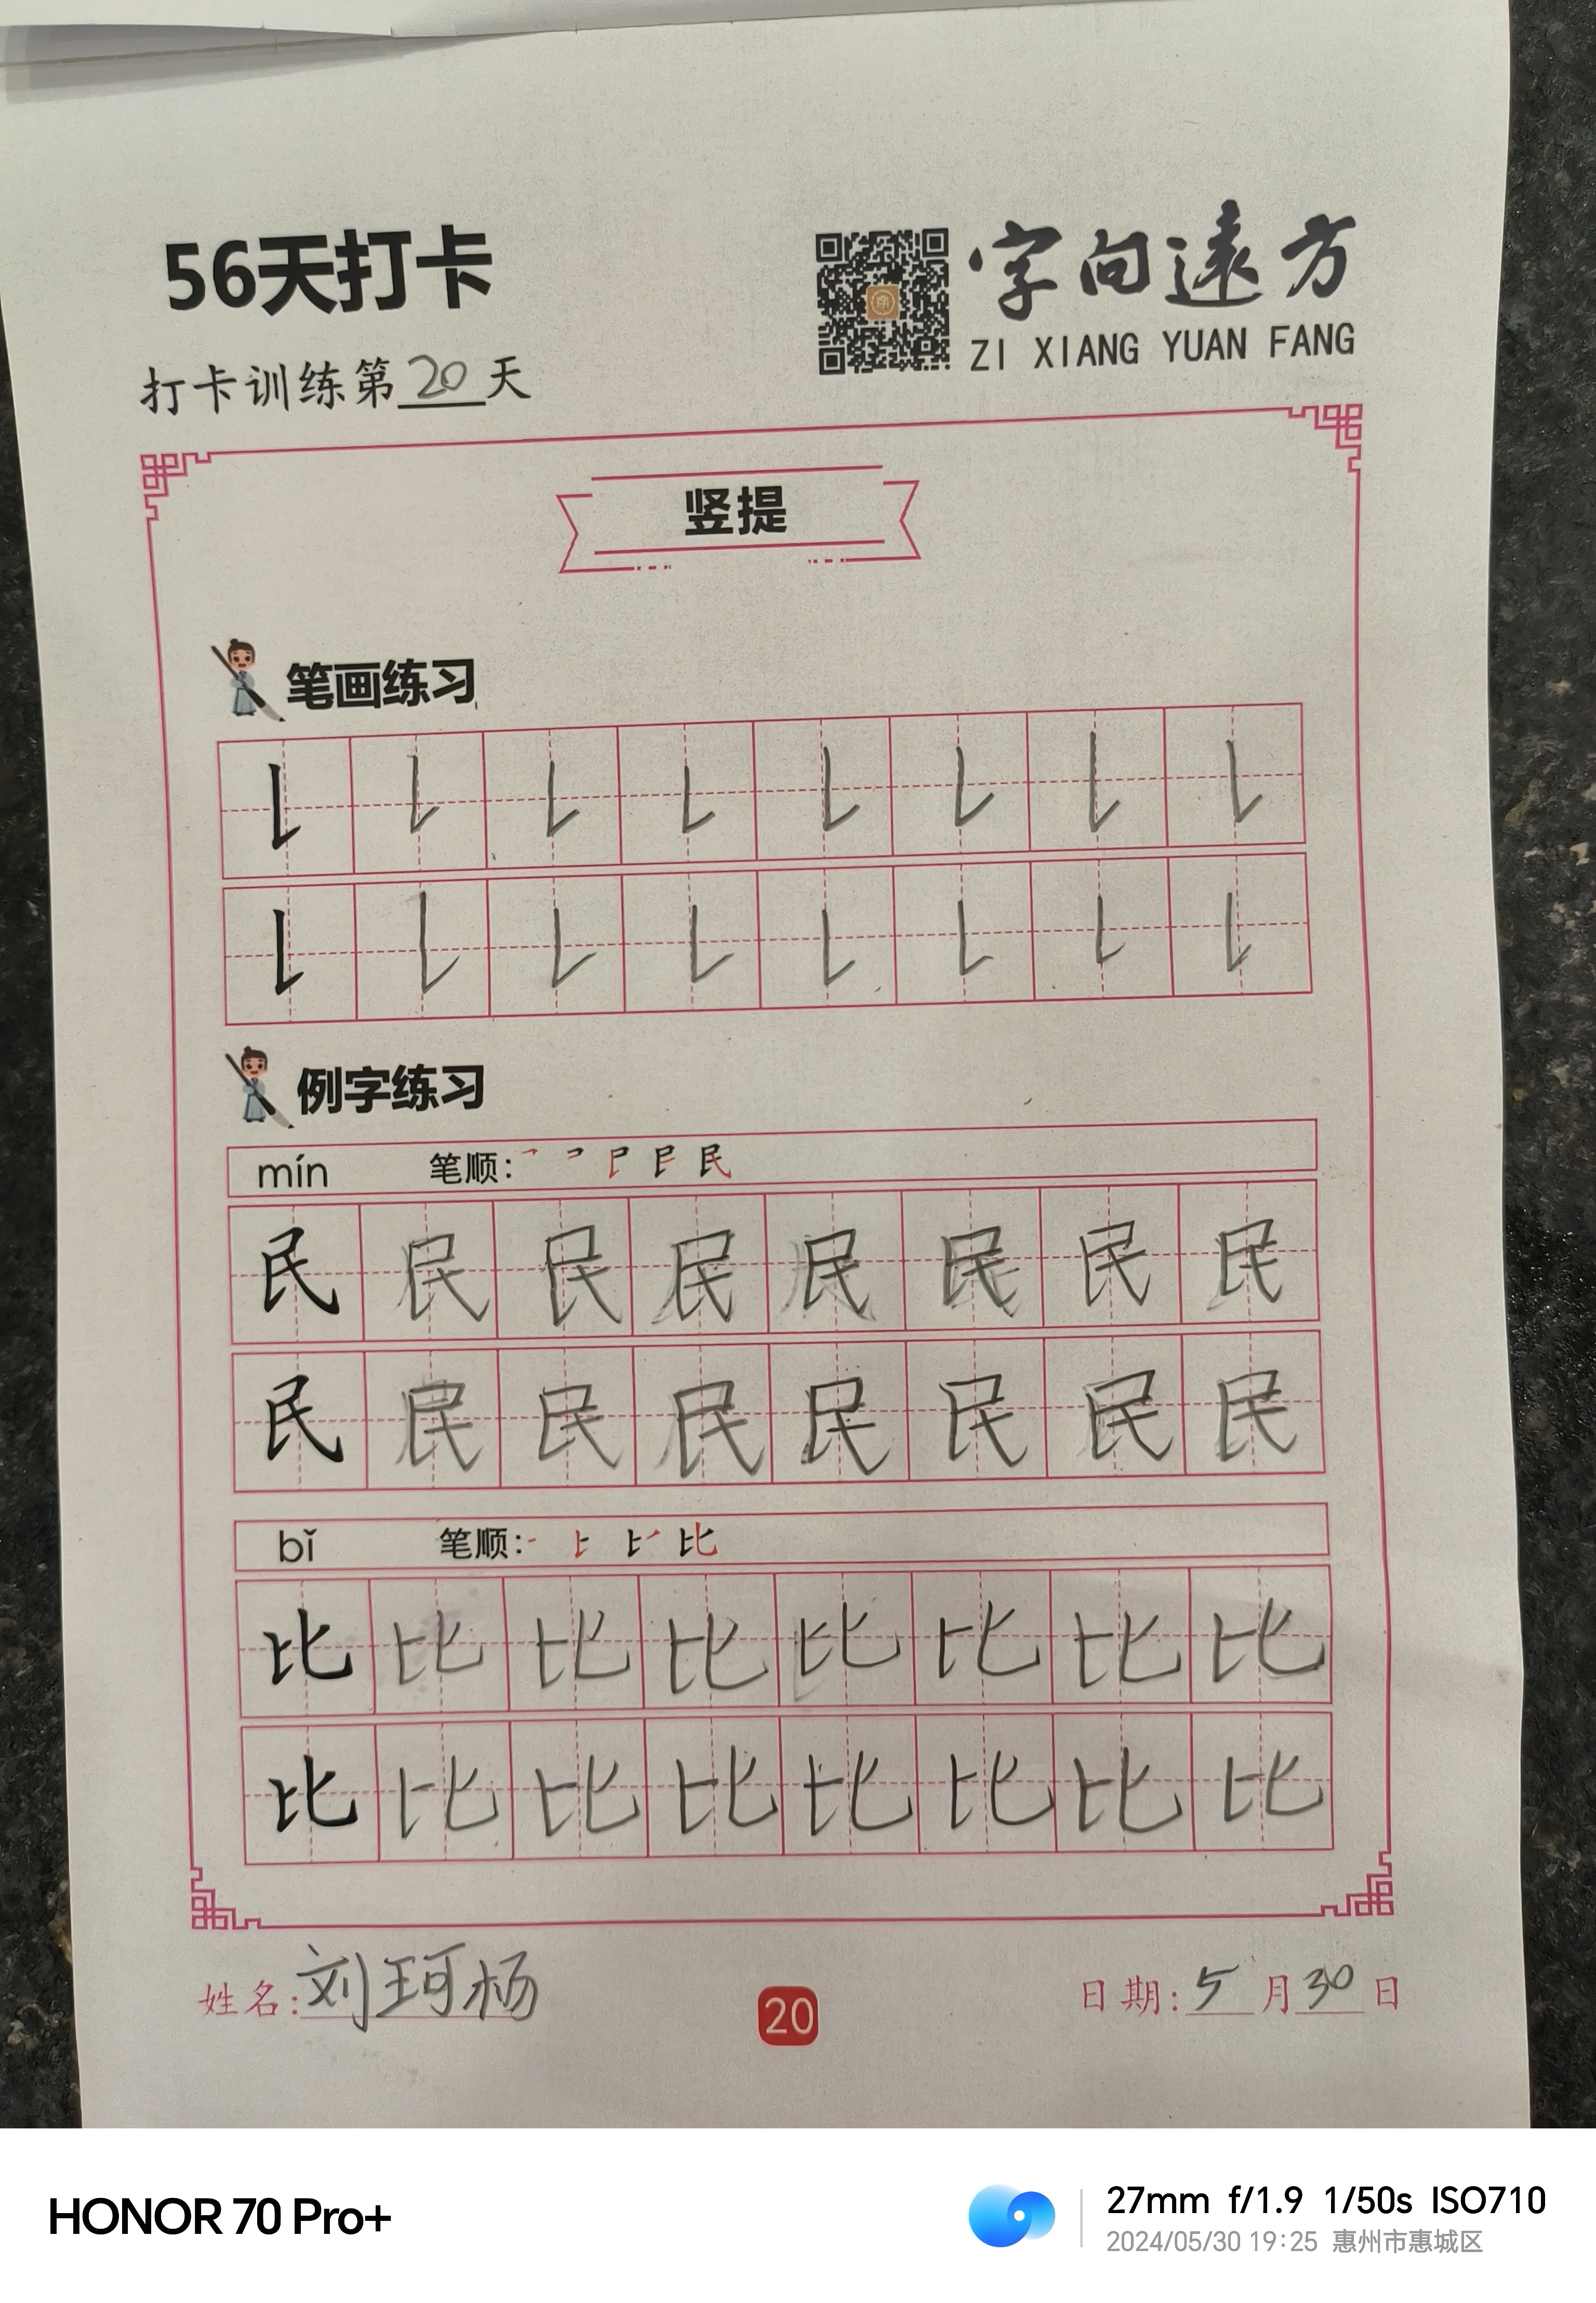 56天打卡
字向遠方
ZI XIANG YUAN FANG
打卡训练第20天
竖提
笔画练习
例字练习
mín 笔顺:
民 民 民 民 民 民 民 民
民 民 民 民 民 民 民 民
bǐ 笔顺:
比 比 比 比 比 比 比 比
比 比 比 比 比 比 比 比
姓名:刘珂杨
20
日期:5月30日
HONOR 70 Pro+
27mm f/1.9 1/50s ISO710
2024/05/30 19:25 惠州市惠城区